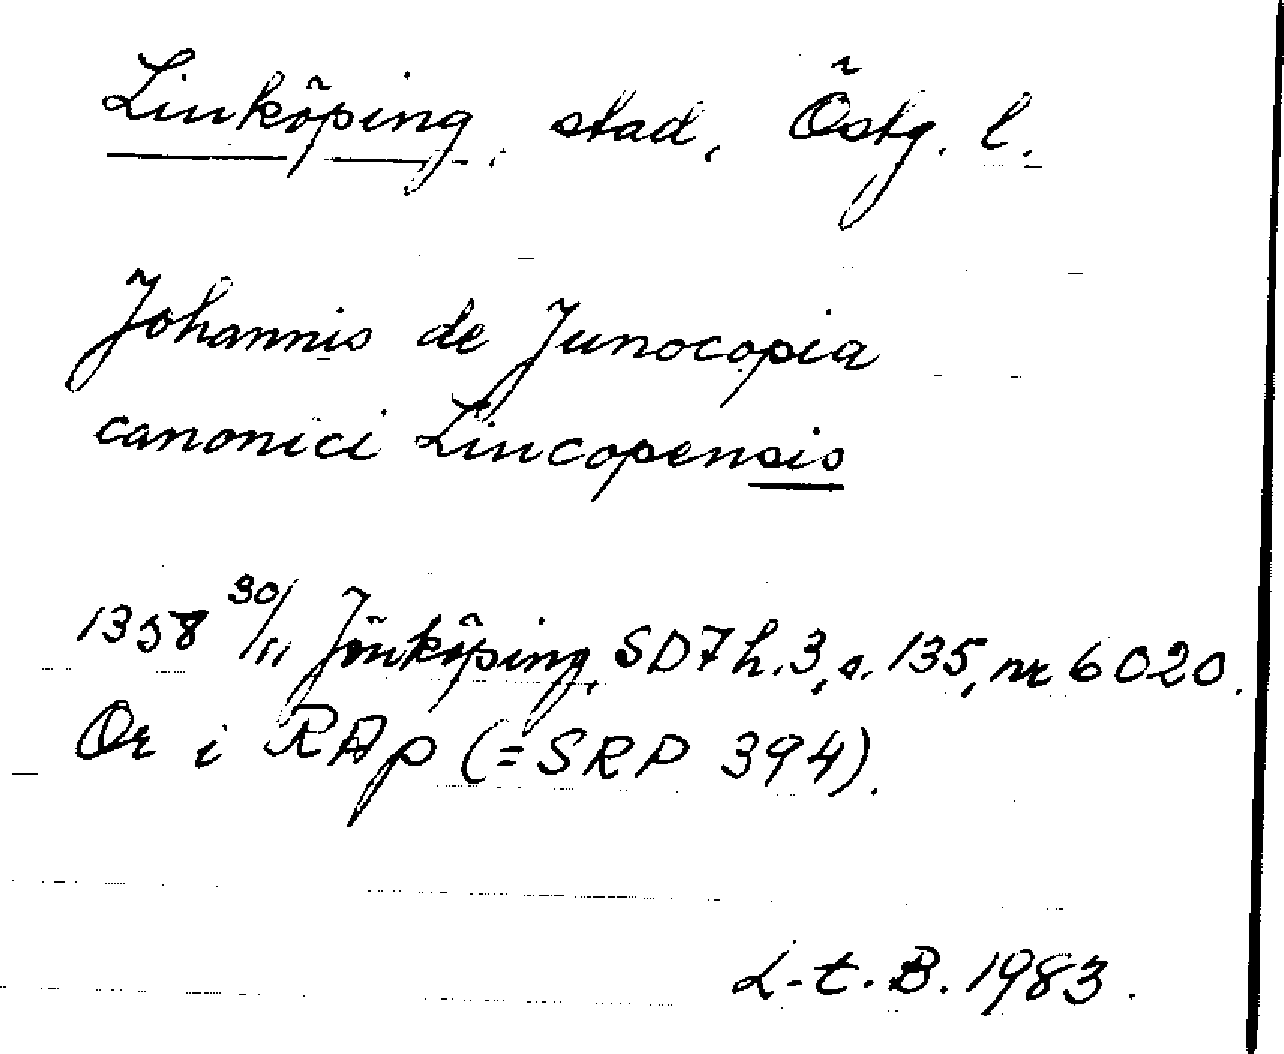 Linköping, stad, Östg. l.
Johannis de Junocopia
canonici Lincopensis
1358 30/11 Jönköping, SD7 h. 3, s. 135, nr 6020.
Or i RAp (=SRP 394).
L-t. B. 1983.